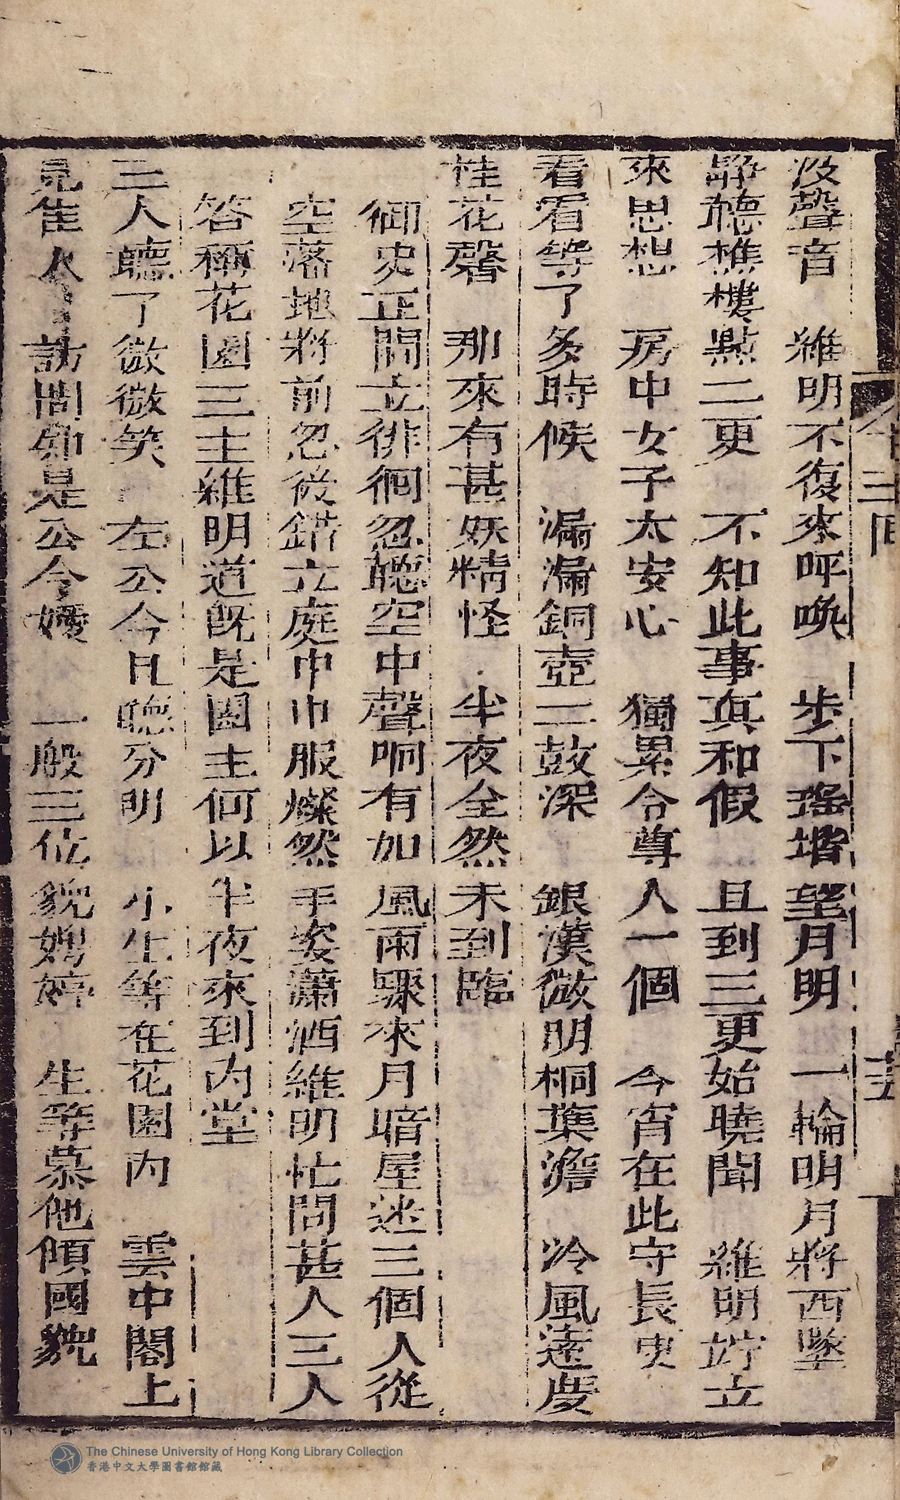 没聲音　維明不復來呼喚　步下瑤堦望月明　一輪明月將西墜
靜聽樵樓點二更　不知此事真和假　且到三更始曉聞　維明竚立
來思想　房中女子太安心　獨累令尊人一個　今宵在此守長更
看看等了多時候　漏漏銅壺二鼓深　銀漢微明桐葉澹　冷風遠度
桂花馨　那來有甚妖精怪　半夜全然未到臨
御史正閒立徘徊忽聽空中聲响有如風雨驟來月暗屋迷三個人從
空落地將前忽後錯立庭中巾服燦然丰姿瀟洒維明忙問甚人三人
答稱花園三主維明道既是園主何以半夜來到內堂
三人聽了微微笑　左公今日聽分明　小生等在花園內　雲中閣上
見佳人　訪問卻是公令嬡　一般三位貌娉婷　生等慕他傾國貌
三回
The Chinese University of Hong Kong Library Collection
香港中文大學圖書館館藏